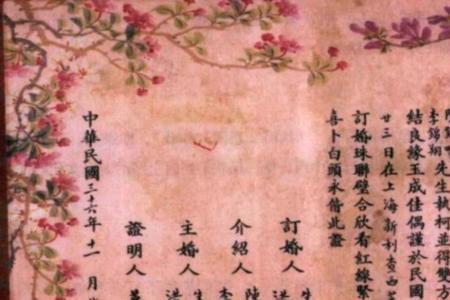 李錦翔先生執柯並得雙方
結良緣玉成佳偶謹於民國
廿三日在上海新利查西
訂婚珠聯璧合欣看紅線繫
喜卜白頭永偕此證
訂婚人
介紹人 陳 李
主婚人
證明人
中華民國三十六年十一月